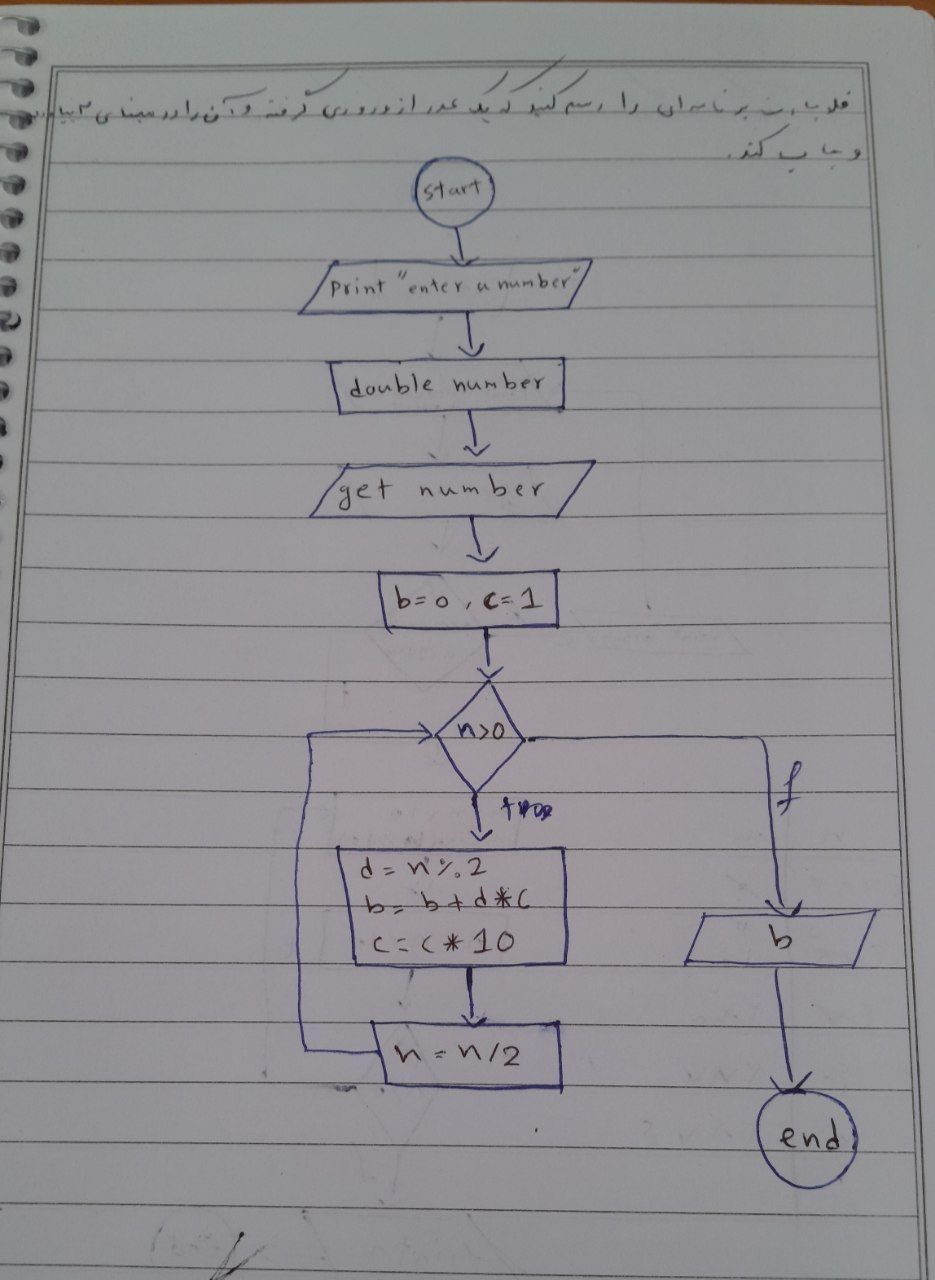 فلوچارت برنامه‌ای را رسم کنید که یک عدد از ورودی گرفته و آن را در مبنای ۲
و چاپ کند.
start
print "enter a number"
double number
get number
b=0 , c=1
n>0
true
f
d = n%2
b = b+d*c
c = c*10
b
n = n/2
end